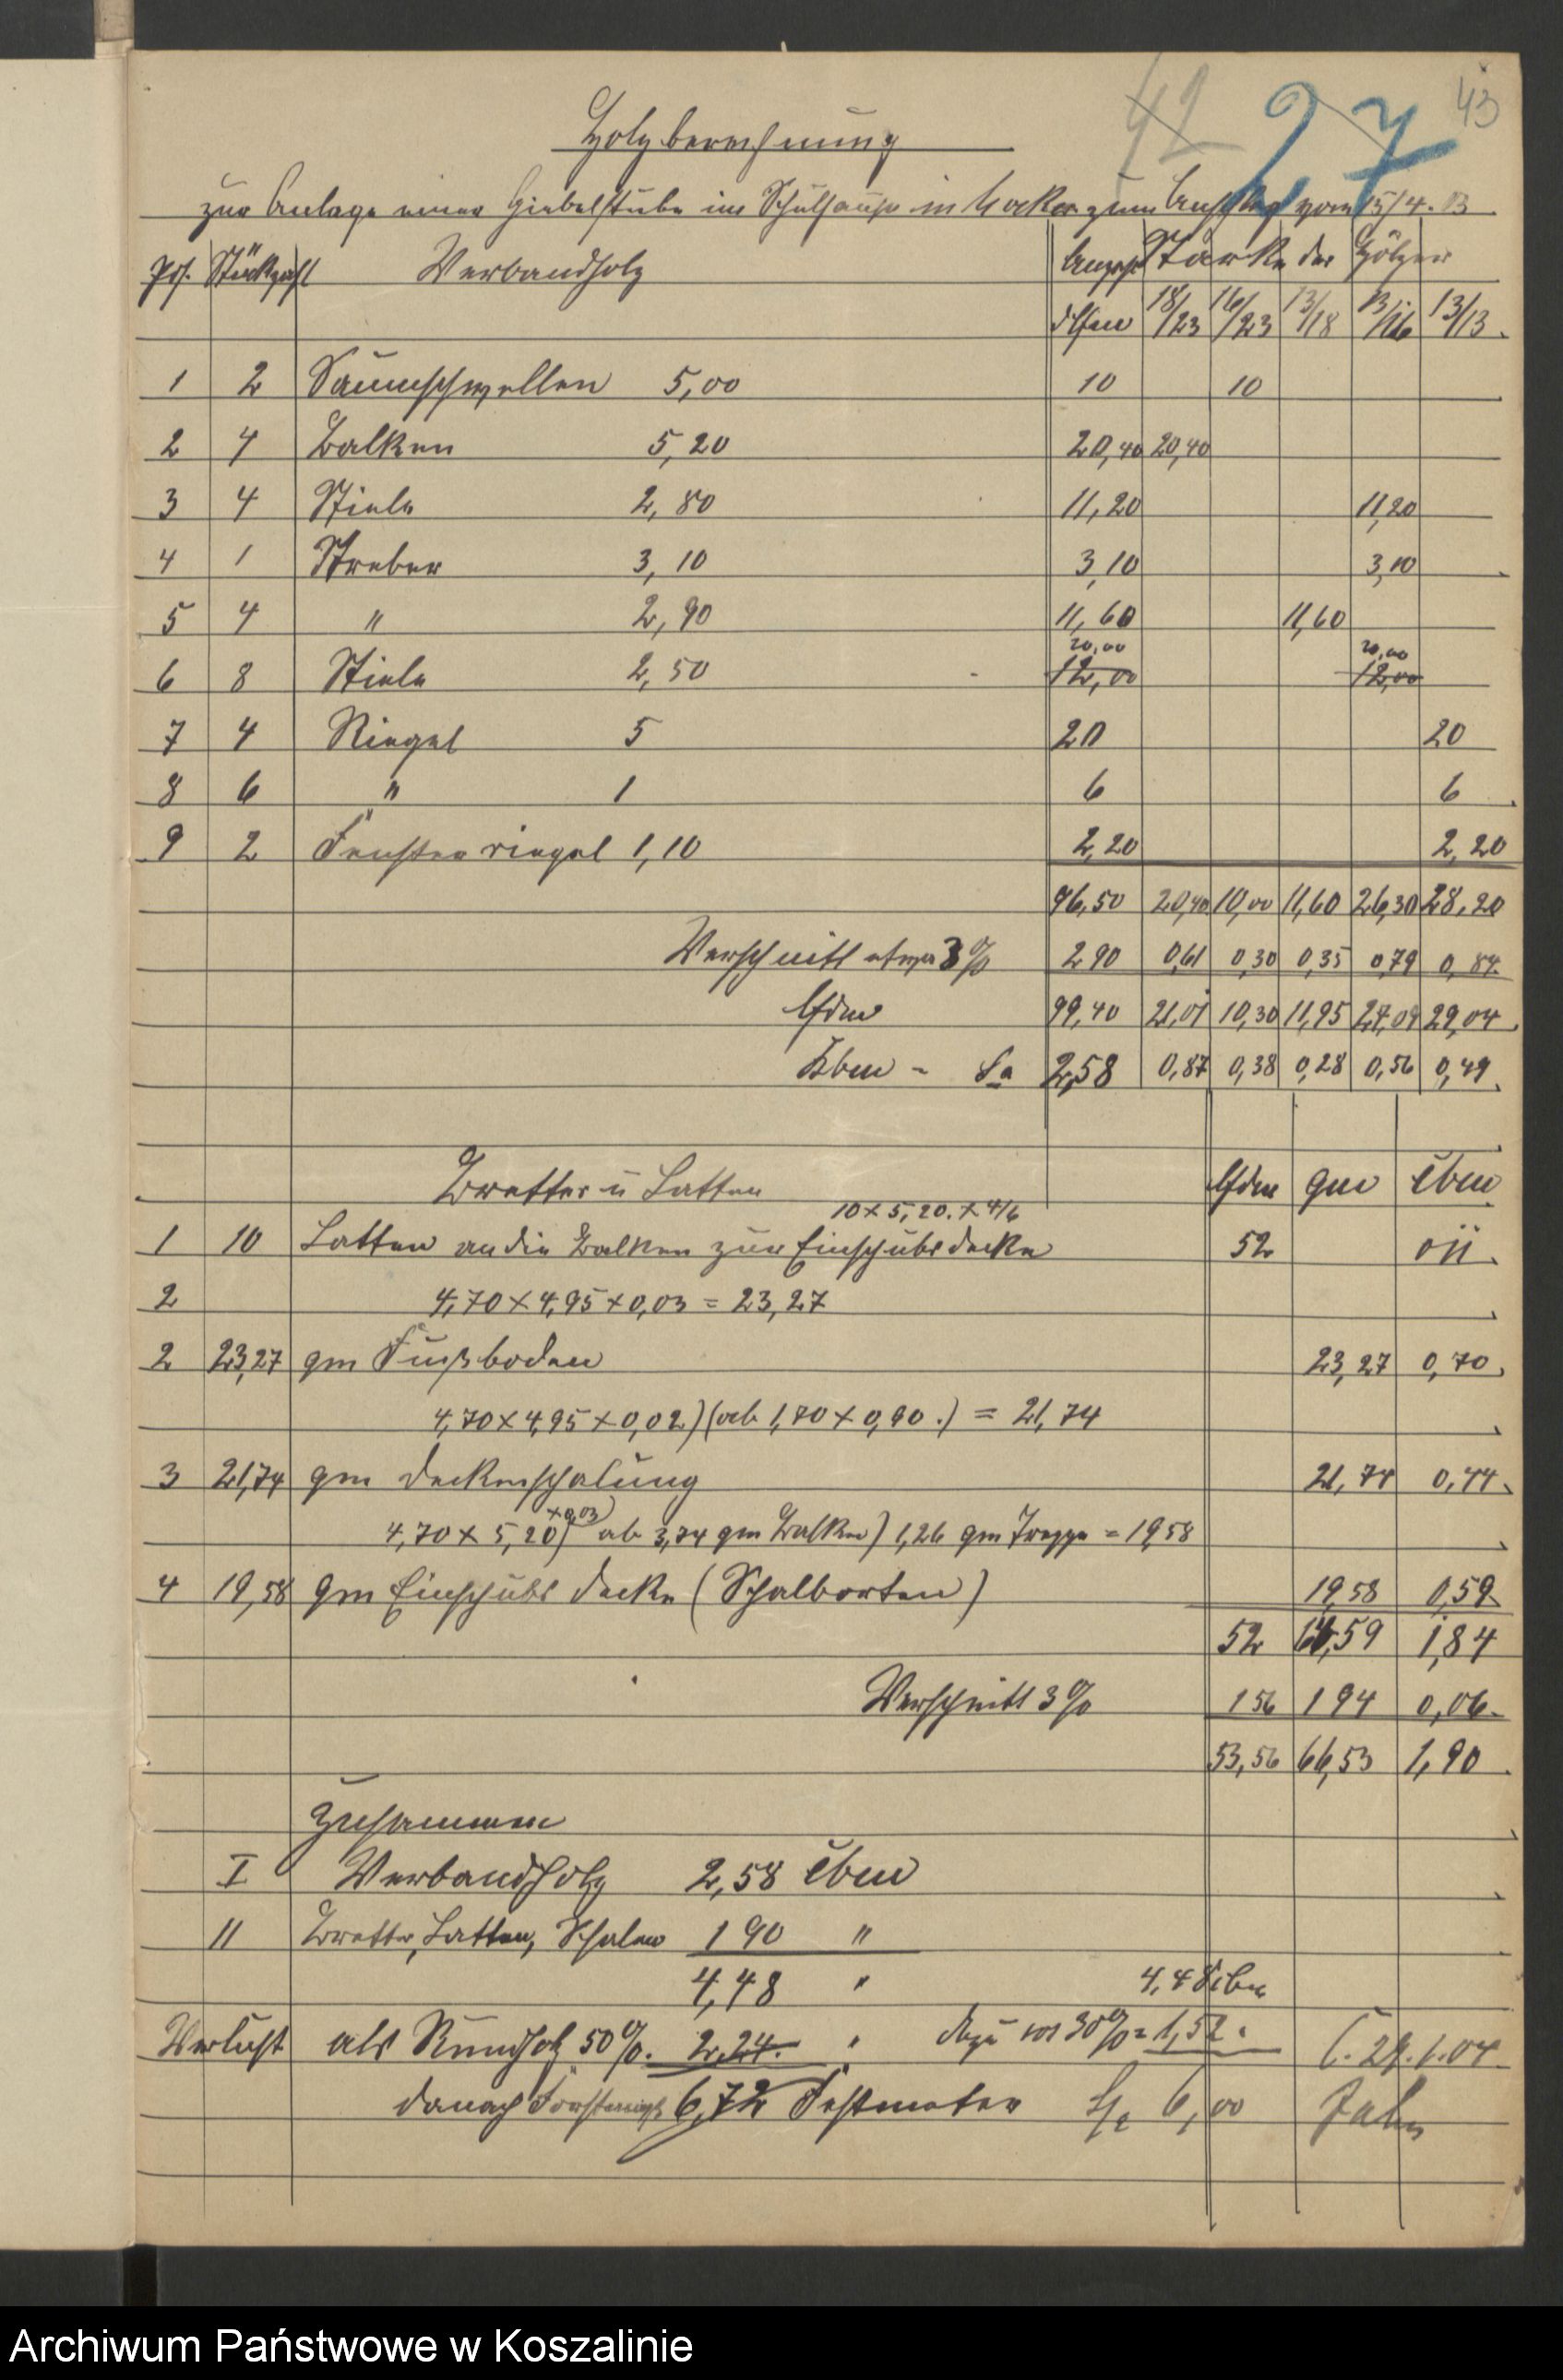 42 27 43
Holzberechnung
zur Anlage einer Giebelstube im Schulhause in zum Anschlag vom 15/4. 03
Pos. Stückzahl Verbandholz Stärke der Hölzer
18/23 16/23 13/18 13/16 13/13
1 2 Saumschwellen 5,00 10 10
2 4 Balken 5,20 20,40 20,40
3 4 Stiele 2,80 11,20 11,20
4 1 Streber 3,10 3,10 3,10
5 4 " 2,90 11,60 11,60
20,00 20,00
6 8 Stiele 2,50 12,00 12,00
7 4 Riegel 5 20 20
8 6 " 1 6 6
9 2 Fensterriegel 1,10 2,20 2,20
96,50 20,40 10,00 11,60 26,30 28,20
Verschnitt etwa 3% 2 90 0,61 0,30 0,35 0,79 0,84
lfdm 99,40 21,01 10,30 11,95 27,09 29,04
Kbm - Sa 2,58 0,87 0,38 0,28 0,56 0,49
Bretter u Latten lfdm qm cbm
10 x 5,20. x 4/6
1 10 Latten an die Balken zur Einschubsdecke 52 0 11
2 4,70 x 4,95 x 0,03 = 23,27
2 23,27 qm Fußboden 23,27 0,70
4,70 x 4,95 x 0,02) (ab 1,70 x 0,90.) = 21,74
3 21,74 qm Deckenschalung 21,74 0,44
x 0,03)
4,70 x 5,20) ab 3,74 qm Balken) 1,26 qm Treppe = 19,58
4 19,58 qm Einschubs decke (Schalborten) 19,58 0,59
52 64,59 1,84
Verschnitt 3% 1 56 1 94 0,06
53,56 66,53 1,90
Zusammen
I Verbandholz 2,58 cbm
II Bretter, Latten, Schalen 1 90 "
4,48 " 4,48 cbm
Verlust als Rundholz 50%. 2,24. " dazu 30% = 1,52.
danach 6,72 Festmeter 6,00
29.1.04